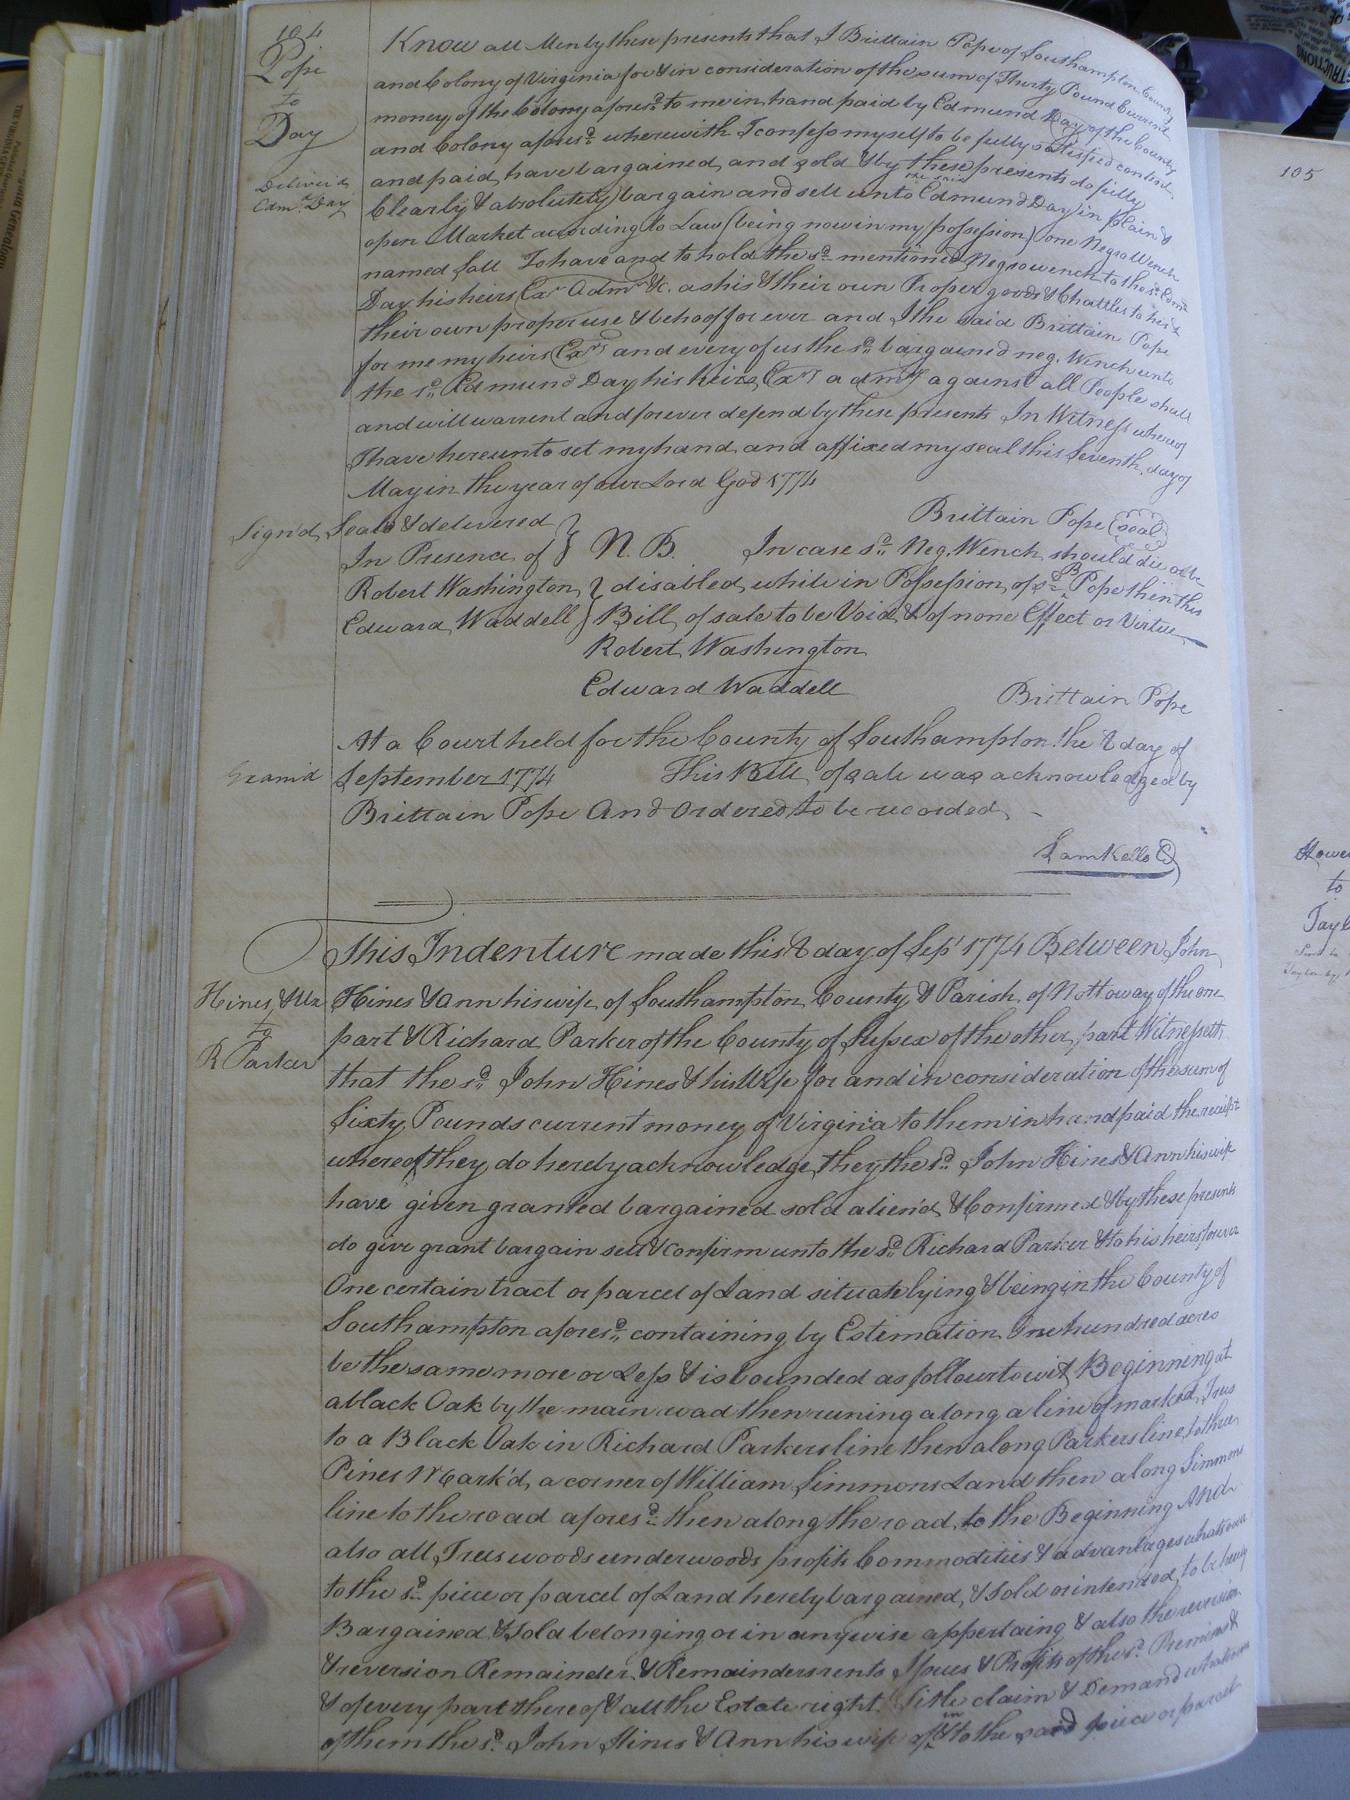 104
Pope
to
Day
Deliver'd
Edmd. Day
Know all Men by these presents that I Brittain Pope of Southampton County
and Colony of Virginia for & in consideration of the sum of Thirty Pound Current
money of the Colony aforesd. to me in hand paid by Edmund Day of the County
and Colony aforesd. wherewith I confess myself to be fully satisfied contented
and paid, have bargained, and sold & by these presents do fully
Clearly & absolutely bargain and sell unto the said Edmund Day in plain &
open Market according to Law (being now in my possession) one Negro Wench
named Sall To have and to hold the sd. mentioned Negro wench to the sd. Edmd.
Day his heirs Exrs. Admrs. &c. as his & their own Proper goods & Chattles to his &
their own proper use & behoof for ever and I the said Brittain Pope
for me my heirs Exrs. and every of us the sd. bargained neg. Wench unto
the sd. Edmund Day his heirs, Exrs. admrs. against all People shall
and will warrent and forever defend by these presents In Witness whereof
I have hereunto set my hand, and affixed my seal this Seventh day of
May in the year of our Lord God 1774
Brittain Pope (seal)
Sign'd, Seal'd & delivered
In Presence of } N. B. In case sd. Neg. Wench, should die or be
Robert Washington } disabled, while in Possession, of sd. B Pope then this
Edward Waddell } Bill, of sale to be Void, & of none Effect or Virtue
Robert Washington
Edward Waddell
Brittain Pope
At a Court held for the County of Southampton the 8 day of
Exami'd September 1774 This Bill, of sale was acknowledged by
Brittain Pope And Ordered to be recorded,
Sam Kello C
This Indenture made this 8 day of Sepr. 1774 Between John
Hines & Ux
to
R Parker
Hines & Ann his wife of Southampton County & Parish of Nottoway of the one
part & Richard Parker of the County of Sussex of the other part Witnesseth
that the sd. John Hines & his Wife for and in consideration of the sum of
Sixty Pounds current money of Virginia to them in hand paid the receipt
whereof they do hereby acknowledge, they the sd. John Hines & Ann his wife
have given granted bargained sold alien'd & Confirmed & by these presents
do give grant bargain sell & confirm unto the sd. Richard Parker & to his heirs forever
One certain tract or parcel of Land situate lying & being in the County of
Southampton aforesd. containing by Estimation One hundred acres
be the same more or Less & is bounded as follows to wit Beginning at
a black Oak by the main road then runing along a line of marked, Trees
to a Black Oak in Richard Parkers line then along Parkers line, to three,
Pines Mark'd, a corner of William Simmons Land then along Simmons
line to the road aforesd. then along the road, to the Beginning And
also all, Trees woods underwoods profits Commodities & advantages whatsoever
to the sd. piece or parcel of Land hereby bargained, & sold or intended, to be hereby
Bargained & Sold belonging or in anywise appertaing & also the reversion
& reversion Remainder, & Remainders rents Issues & Profits of the sd. Premises &
& of every part thereof & all the Estate right Title claim & Demand whatsoever
of them the sd. John Hines & Ann his wife of in & to the said piece or parcel
105
to